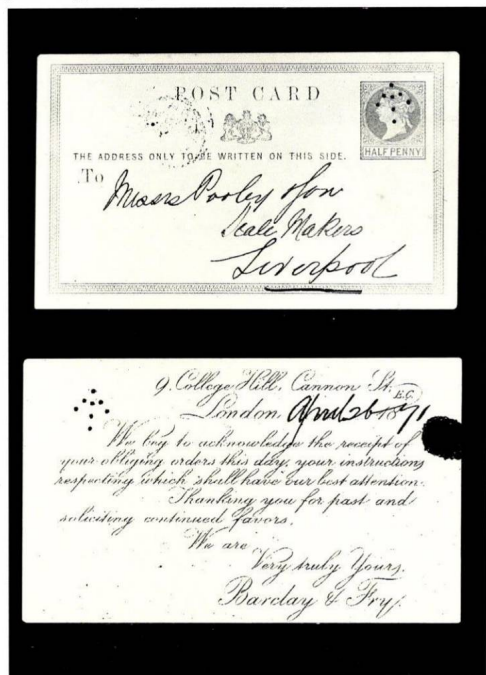 POST CARD
THE ADDRESS ONLY TO BE WRITTEN ON THIS SIDE.
HALF PENNY
To
Messrs Pooley & Son
Scale Makers
Liverpool
9, College Hill, Cannon St.
E.C.
London, April 26 1871
We beg to acknowledge the receipt of
your obliging orders this day, your instructions
respecting which shall have our best attention.
Thanking you for past and
soliciting continued favors.
We are
Very truly Yours,
Barclay & Fry.